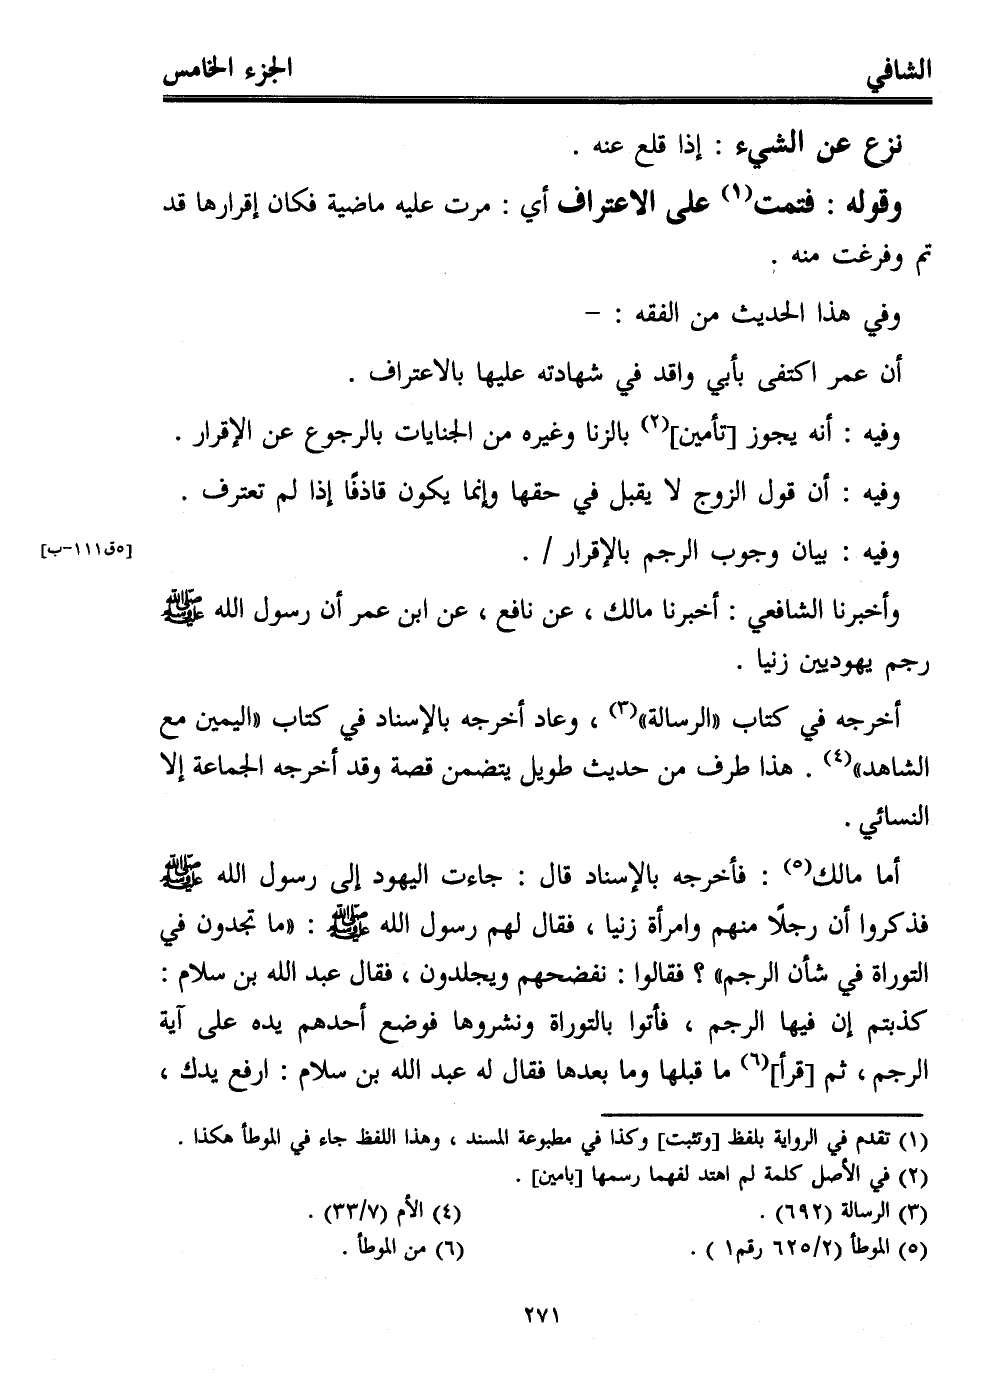 الشافي الجزء الخامس
نزع عن الشيء : إذا قلع عنه .
وقوله : فتمت(١) على الاعتراف أي : مرت عليه ماضية فكان إقرارها قد
تم وفرغت منه .
وفي هذا الحديث من الفقه : –
أن عمر اكتفى بأبي واقد في شهادته عليها بالاعتراف .
وفيه : أنه يجوز [تأمين](٢) بالزنا وغيره من الجنايات بالرجوع عن الإقرار .
وفيه : أن قول الزوج لا يقبل في حقها وإنما يكون قاذفًا إذا لم تعترف .
وفيه : بيان وجوب الرجم بالإقرار / . [٥ق١١١-ب]
وأخبرنا الشافعي : أخبرنا مالك ، عن نافع ، عن ابن عمر أن رسول الله ﷺ
رجم يهوديين زنيا .
أخرجه في كتاب «الرسالة»(٣) ، وعاد أخرجه بالإسناد في كتاب «اليمين مع
الشاهد»(٤) . هذا طرف من حديث طويل يتضمن قصة وقد أخرجه الجماعة إلا
النسائي .
أما مالك(٥) : فأخرجه بالإسناد قال : جاءت اليهود إلى رسول الله ﷺ
فذكروا أن رجلًا منهم وامرأة زنيا ، فقال لهم رسول الله ﷺ : «ما تجدون في
التوراة في شأن الرجم» ؟ فقالوا : نفضحهم ويجلدون ، فقال عبد الله بن سلام :
كذبتم إن فيها الرجم ، فأتوا بالتوراة ونشروها فوضع أحدهم يده على آية
الرجم ، ثم [قرأ](٦) ما قبلها وما بعدها فقال له عبد الله بن سلام : ارفع يدك ،
(١) تقدم في الرواية بلفظ [وتثبت] وكذا في مطبوعة المسند ، وهذا اللفظ جاء في الموطأ هكذا .
(٢) في الأصل كلمة لم اهتد لفهما رسمها [بامين] .
(٣) الرسالة (٦٩٢) . (٤) الأم (٣٣/٧) .
(٥) الموطأ (٦٢٥/٢ رقم١ ) . (٦) من الموطأ .
٢٧١